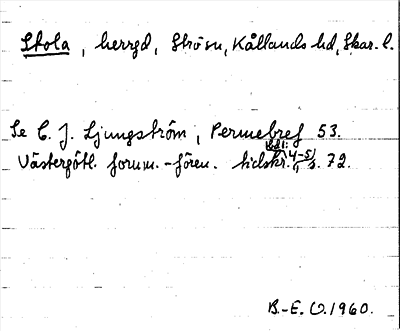 Stola, herrgd, Strö sn, Kållands hd, Skar. l.
Se C. J. Ljungström, Permebref 53.
Västergötl. fornm.-fören. tidskr. Bd 1: 4-5, s. 72.
B.-E. O. 1960.